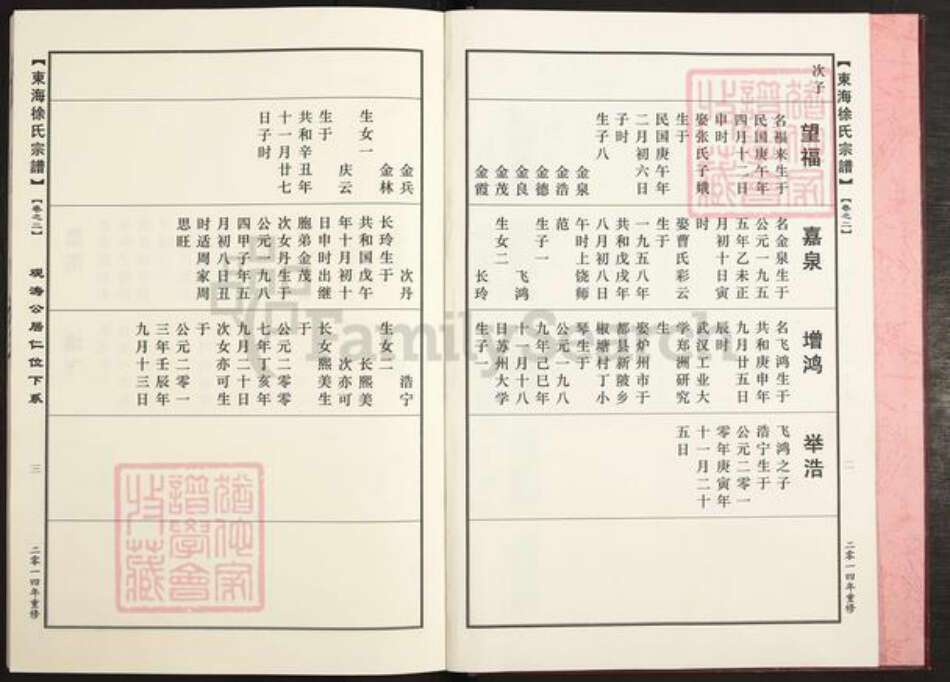 【東海徐氏宗譜】
【卷之二】
二零一四年重修
次子
望福
名福来生于
民国庚午年
四月十二日
申时
娶张氏子娥
生于
民国庚午年
二月初六日
子时
生子八
金泉
金浩
金德
金良
金茂
金霞
金兵
金林
庆云
生女一
生于
共和辛丑年
十一月廿七
日子时
嘉泉
名金泉生于
公元一九五
五年乙未正
月初十日寅
时
娶曹氏彩云
生于
一九五八年
共和戊戌年
八月初八日
午时上饶师
范
生子一
飞鸿
生女二
长玲
次丹
长玲生于
共和国戊午
年十月初十
日申时出继
胞弟金茂
次女丹生于
公元一九八
四甲子年五
月初八日丑
时适周家周
思旺
增鸿
名飞鸿生于
共和庚申年
九月廿五日
辰时
武汉工业大
学郑洲研究
生
娶炉州市于
都县新陂乡
椒塘村丁小
琴生于
公元一九八
九年己巳年
十一月十八
日苏州大学
生子一
浩宁
生女二
长熙美
次亦可
长女熙美生
于
公元二零零
七年丁亥年
九月二十日
次女亦可生
于
公元二零一
三年壬辰年
九月十三日
举浩
飞鸿之子
浩宁生于
公元二零一
零年庚寅年
十一月二十
五日
FamilySearch
【東海徐氏宗譜】
【卷之二】
观涛公居仁位下系
三
二零一四年重修